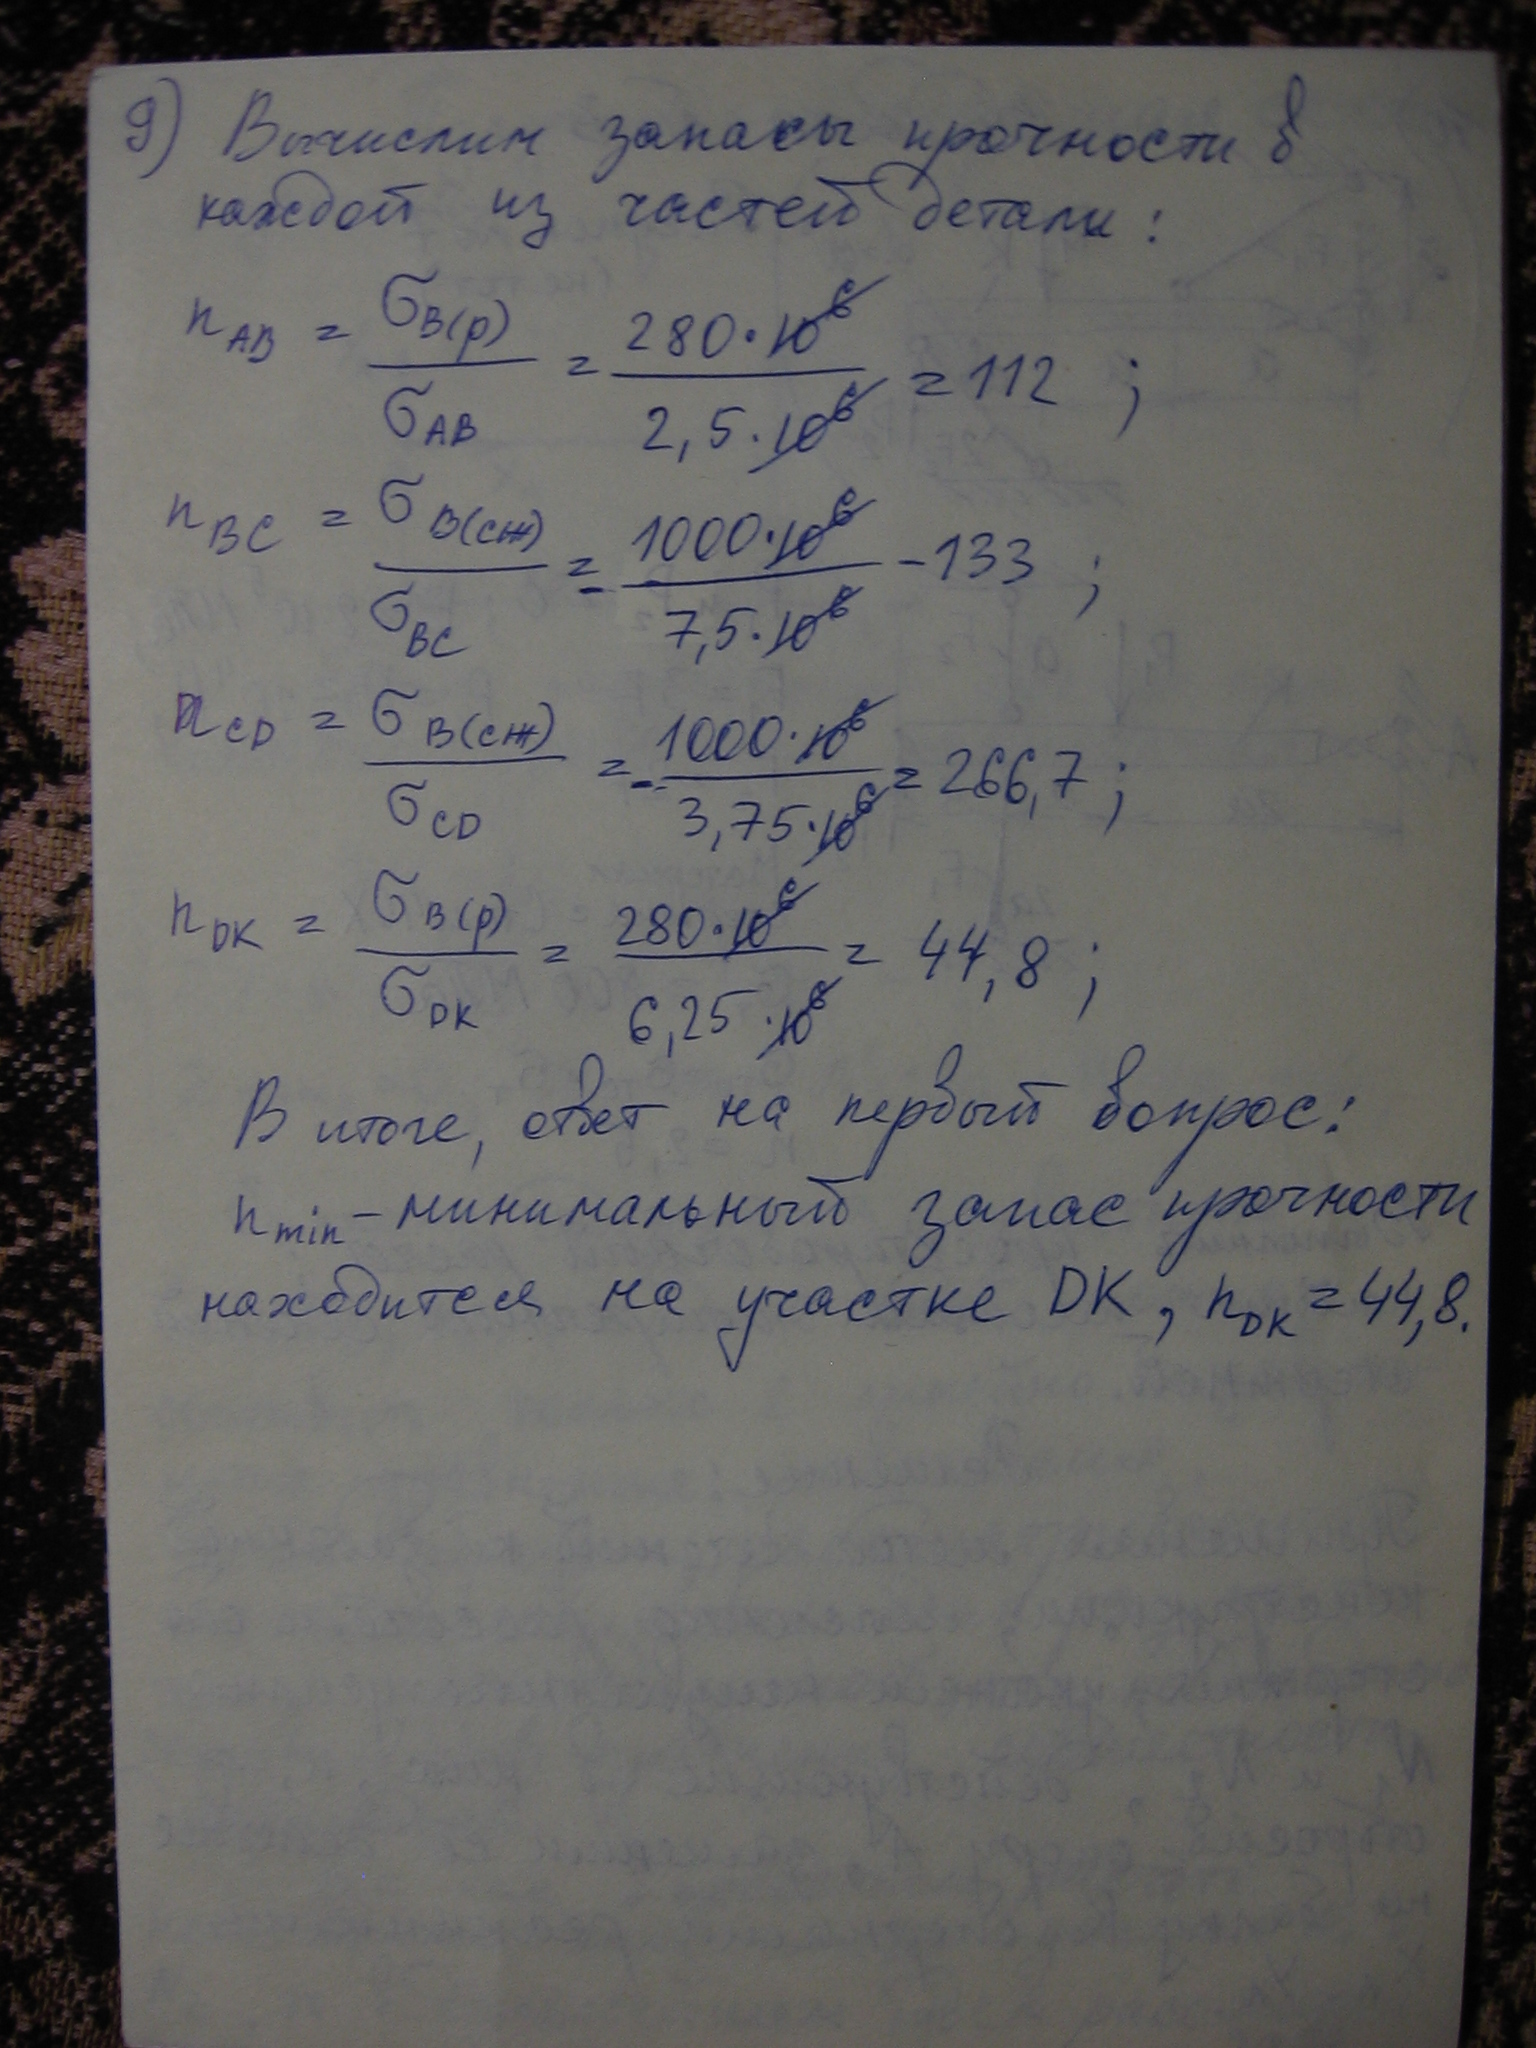 9) Вычислим запасы прочности в
каждой из частей детали:
n_AB = σ_B(р) / σ_AB = 280·10^6 / 2,5·10^6 = 112 ;
n_BC = σ_B(сж) / σ_BC = - 1000·10^6 / 7,5·10^6 - 133 ;
n_CD = σ_B(сж) / σ_CD = - 1000·10^6 / 3,75·10^6 = 266,7 ;
n_DK = σ_B(р) / σ_DK = 280·10^6 / 6,25·10^6 = 44,8 ;
В итоге, ответ на первый вопрос:
n_min - минимальный запас прочности
находится на участке DK, n_DK = 44,8.